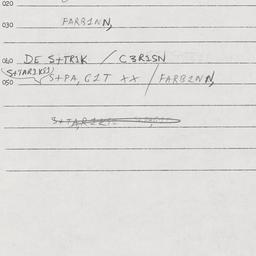 020
030 FARBINN,
060 DE S+TRIK / C3RISN
S+TARIKEI
050 S+PA, GIT XX / FARBINN,